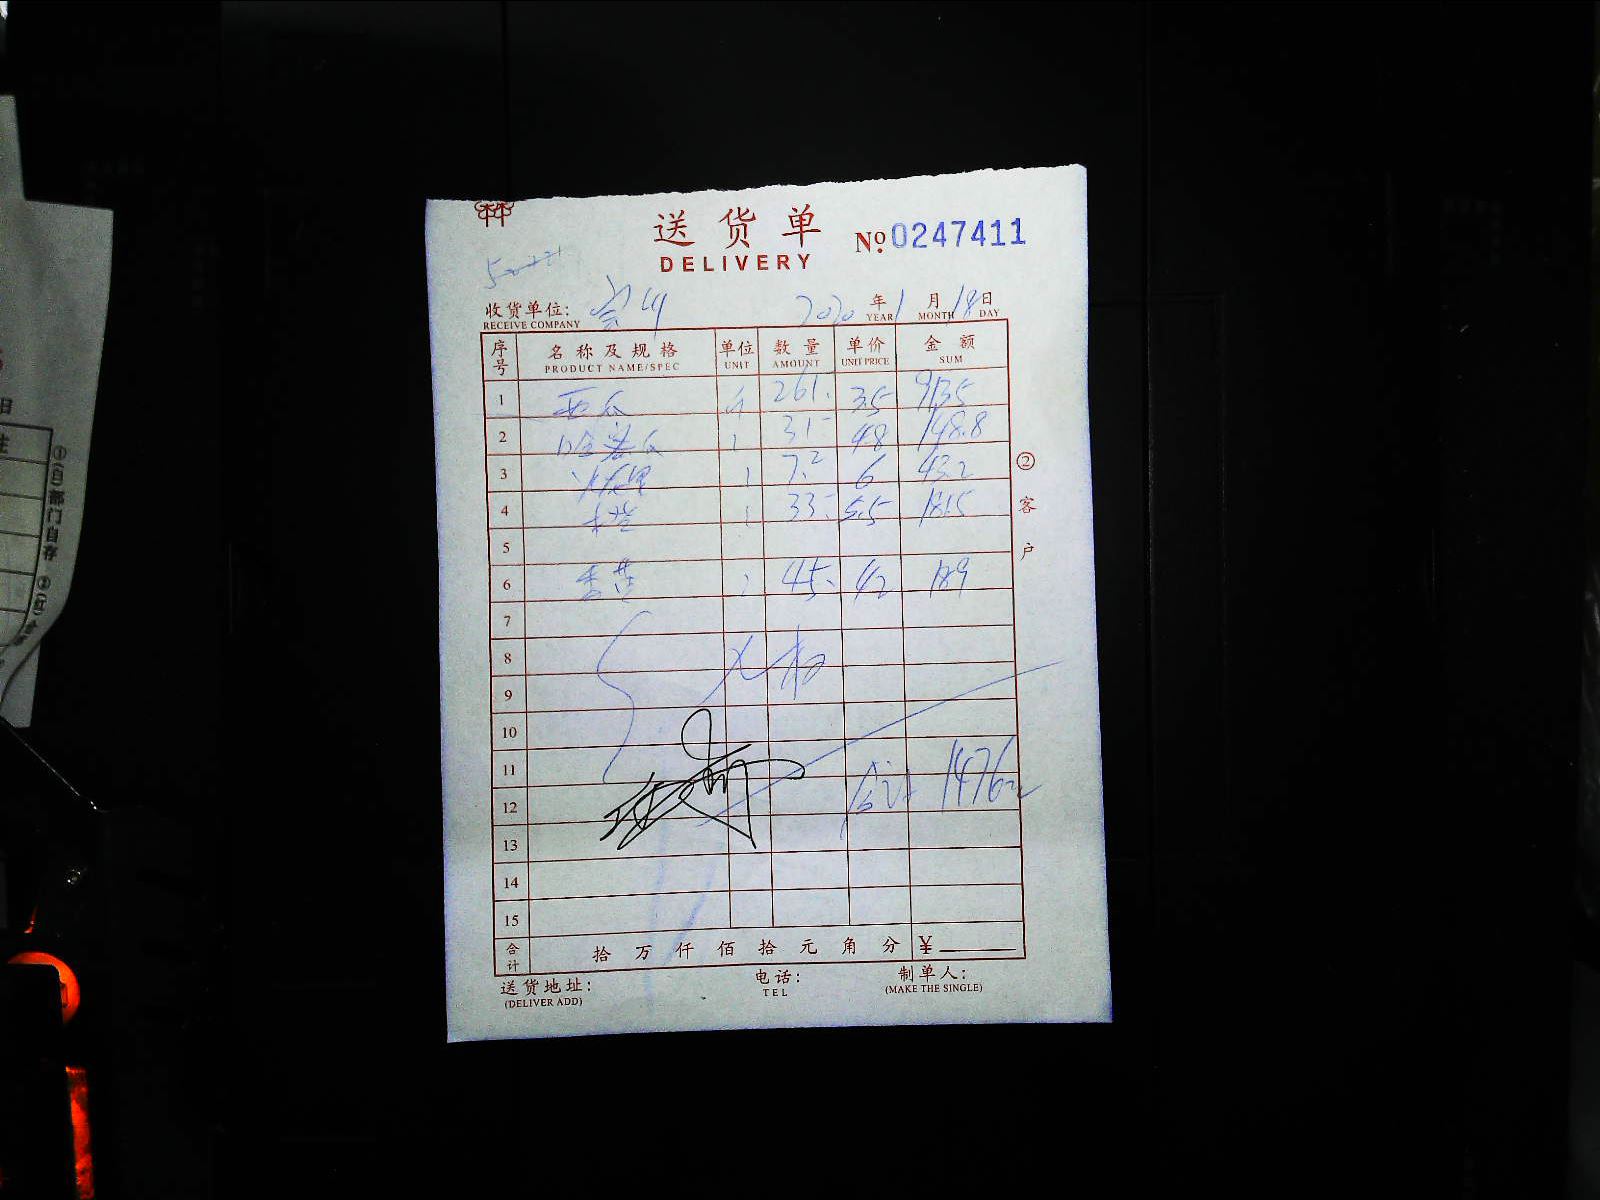 送货单
DELIVERY
No. 0247411
收货单位:
RECEIVE COMPANY
2020 年 1 月 18 日
YEAR MONTH DAY
序号 名称及规格 单位 数量 单价 金额
PRODUCT NAME/SPEC UNIT AMOUNT UNIT PRICE SUM
1 西瓜 斤 261. 3.5 913.5
2 哈密瓜 31- 4.8 148.8
3 7.2 6 43.2
4 33- 5.5 181.5
5
6 香蕉 45. 4.2 189
7
8
9
10
11
12 合计 1476元
13
14
15
合计 拾 万 仟 佰 拾 元 角 分 ¥
送货地址: 电话: 制单人:
(DELIVER ADD) TEL (MAKE THE SINGLE)
②客户
①(白)部门自存 ②(红)
日